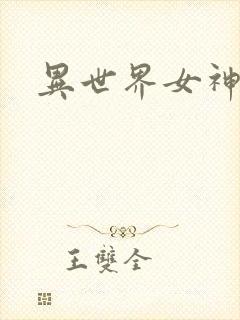 異世界女神
王雙全